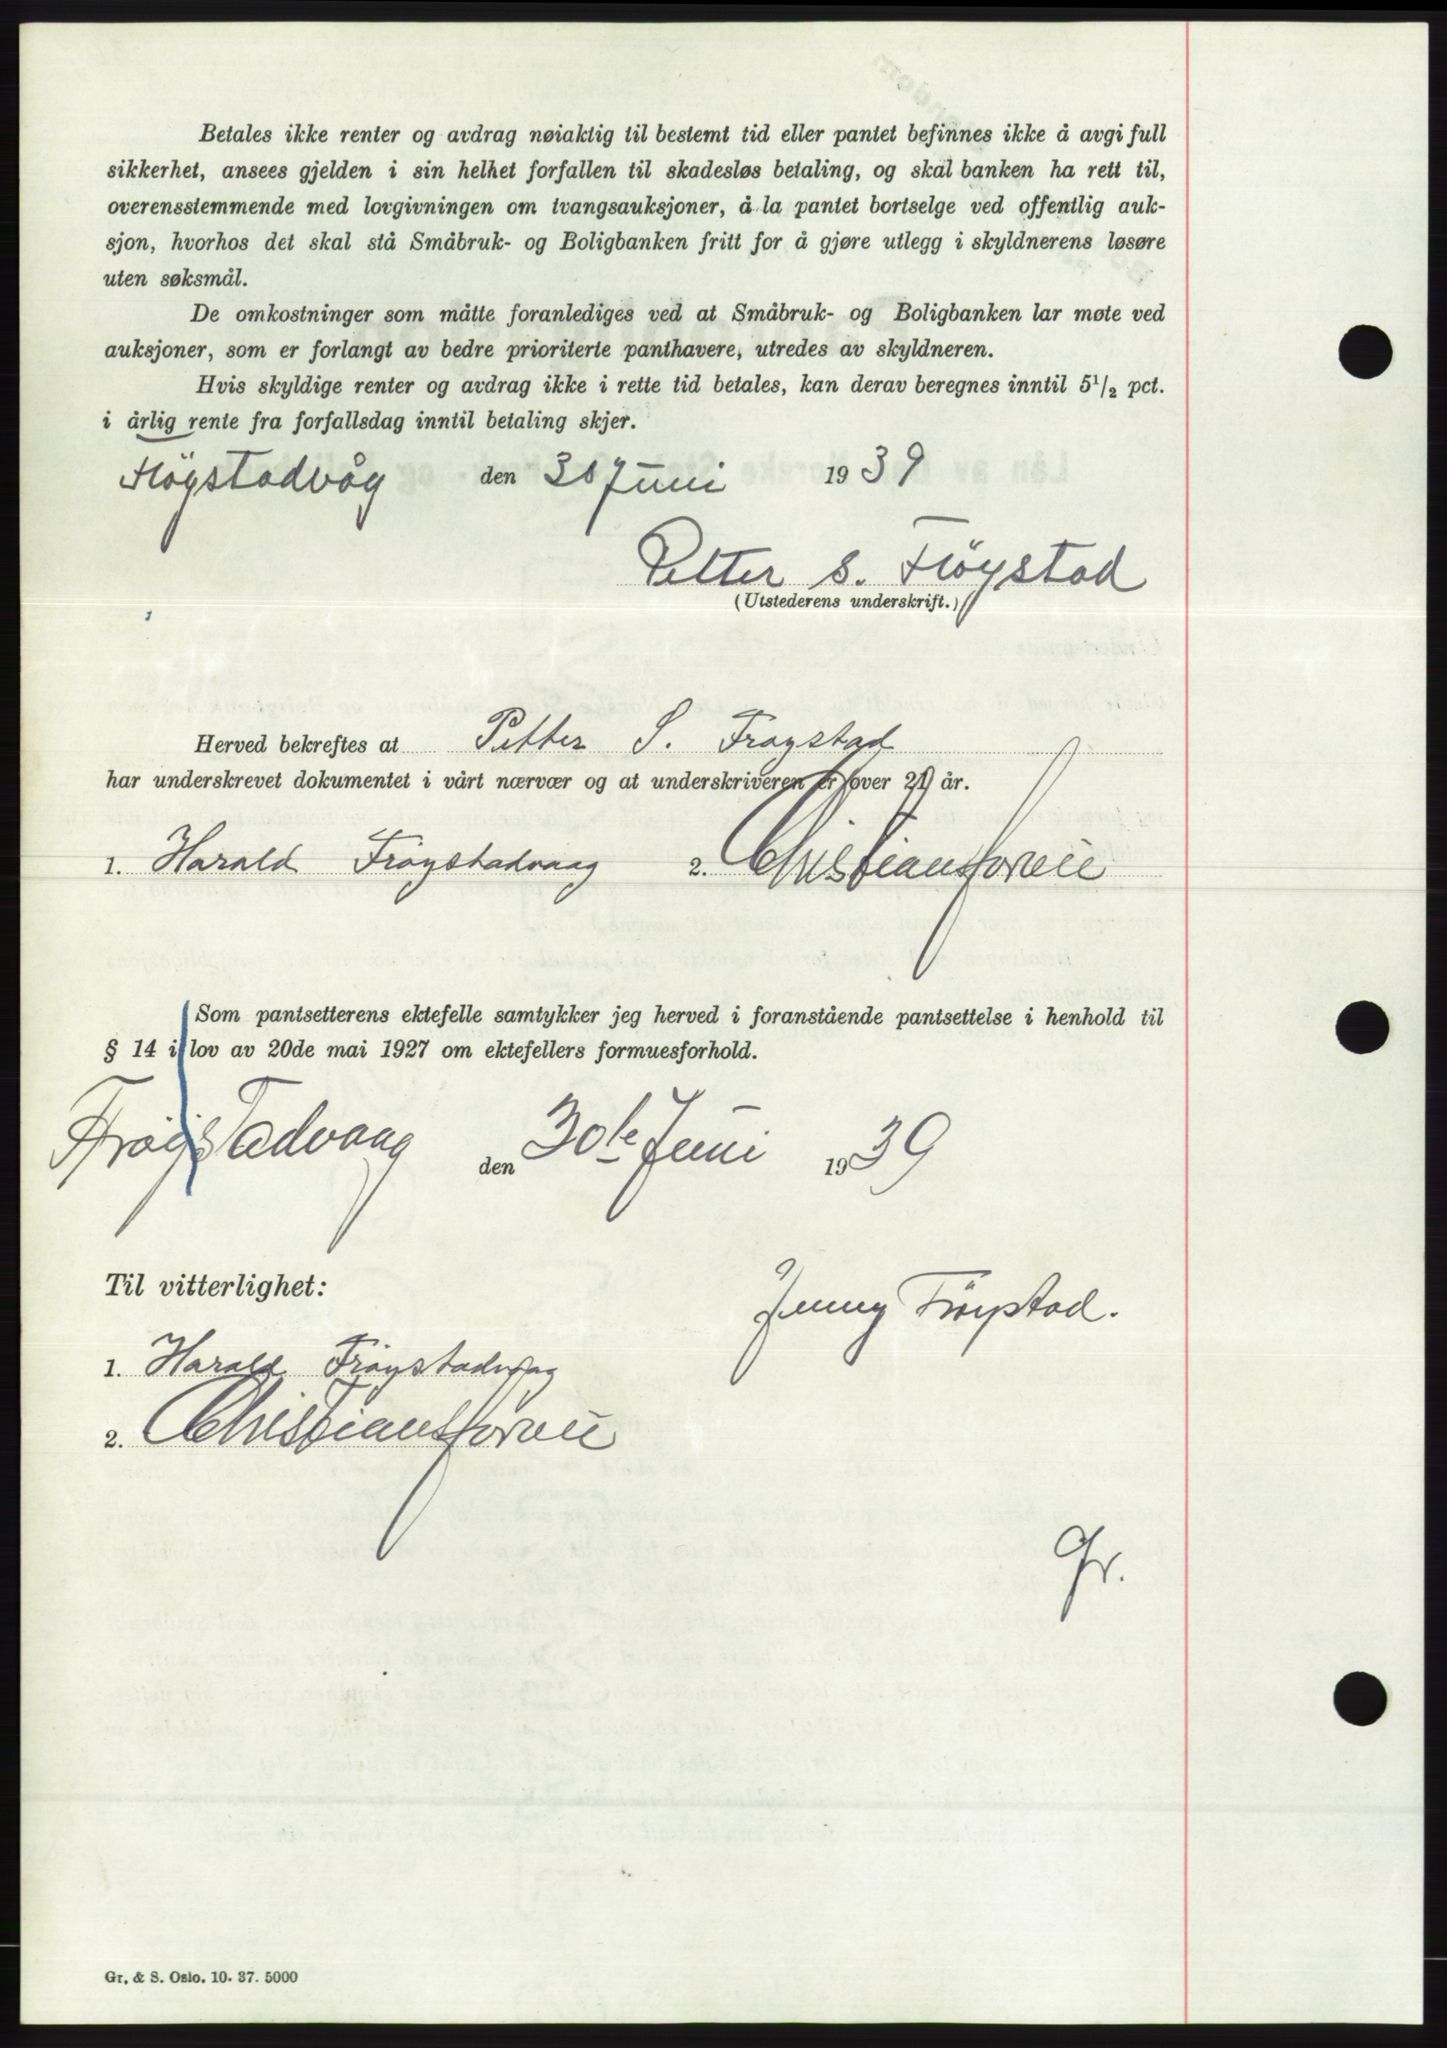 Betales ikke renter og avdrag nøiaktig til bestemt tid eller pantet befinnes ikke å avgi full
sikkerhet, ansees gjelden i sin helhet forfallen til skadesløs betaling, og skal banken ha rett til,
overensstemmende med lovgivningen om tvangsauksjoner, å la pantet bortselge ved offentlig auk-
sjon, hvorhos det skal stå Småbruk- og Boligbanken fritt for å gjøre utlegg i skyldnerens løsøre
uten søksmål.
De omkostninger som måtte foranlediges ved at Småbruk- og Boligbanken lar møte ved
auksjoner, som er forlangt av bedre prioriterte panthavere, utredes av skyldneren.
Hvis skyldige renter og avdrag ikke i rette tid betales, kan derav beregnes inntil 5 1/2 pct.
i årlig rente fra forfallsdag inntil betaling skjer.
Frøystadvåg den 30 Juni 1939
Petter S. Frøystad
(Utstederens underskrift.)
Herved bekreftes at Petter S. Frøystad
har underskrevet dokumentet i vårt nærvær og at underskriveren er over 21 år.
1. Harald Frøystadvaag 2.
Som pantsetterens ektefelle samtykker jeg herved i foranstående pantsettelse i henhold til
§ 14 i lov av 20de mai 1927 om ektefellers formuesforhold.
Frøystadvaag den 30te Juni 1939
Til vitterlighet:
Jenny Frøystad.
1. Harald Frøystadvaag
2.
Gr.
Gr. & S. Oslo. 10. 37. 5000